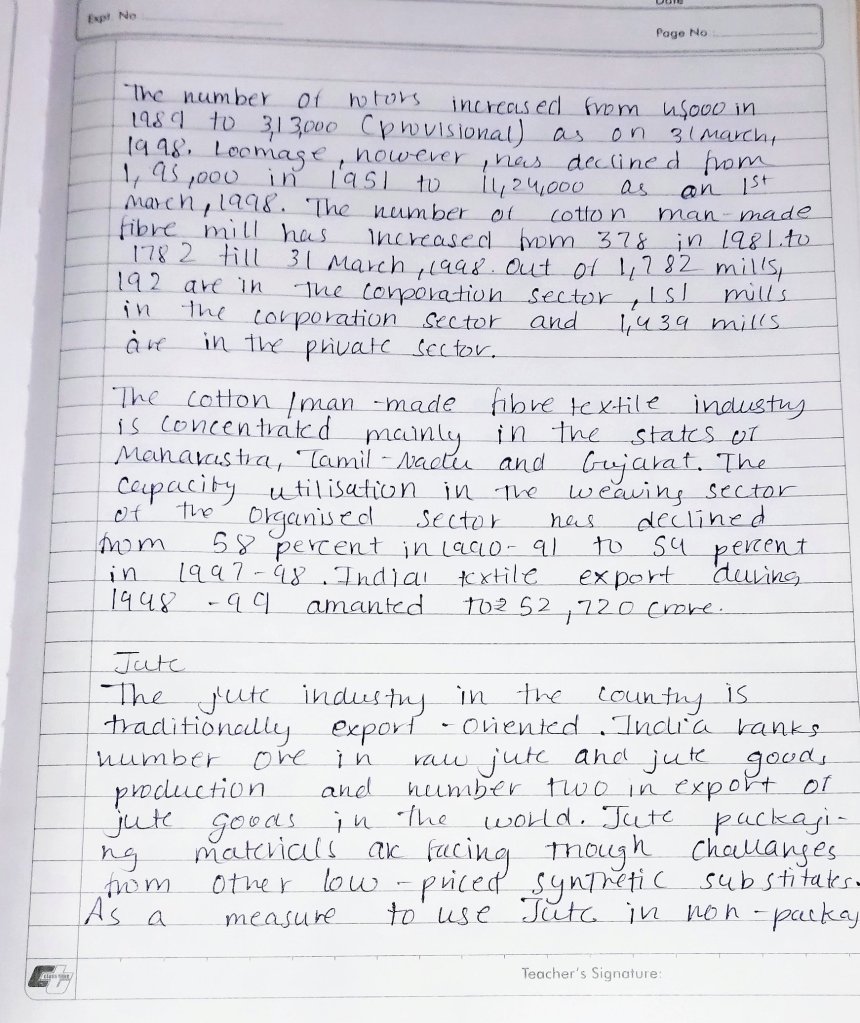 Date
Expt. No
Page No
The number of rotors increased from 45000 in
1989 to 3,13,000 (provisional) as on 31 March,
1998. Loomage, however, has declined from
1,95,000 in 1951 to 11,24,000 as on 1st
March, 1998. The number of cotton man-made
fibre mill has increased from 378 in 1981 to
1782 till 31 March, 1998. Out of 1,782 mills,
192 are in the corporation sector, 151 mills
in the corporation sector and 1,439 mills
are in the private sector.
The cotton/man-made fibre textile industry
is concentrated mainly in the states of
Maharastra, Tamil-Nadu and Gujarat. The
Capacity utilisation in the weaving sector
of the organised sector has declined
from 58 percent in 1990-91 to 54 percent
in 1997-98. Indial textile export during
1998-99 amanted to ₹ 52,720 crore.
Jute
The jute industry in the country is
traditionally export-oriented. India ranks
number one in raw jute and jute goods
production and number two in export of
jute goods in the world. Jute packagi-
ng materials are facing though challanges
from other low-priced synthetic substitates.
As a measure to use Jute in non-packag
Teacher's Signature: